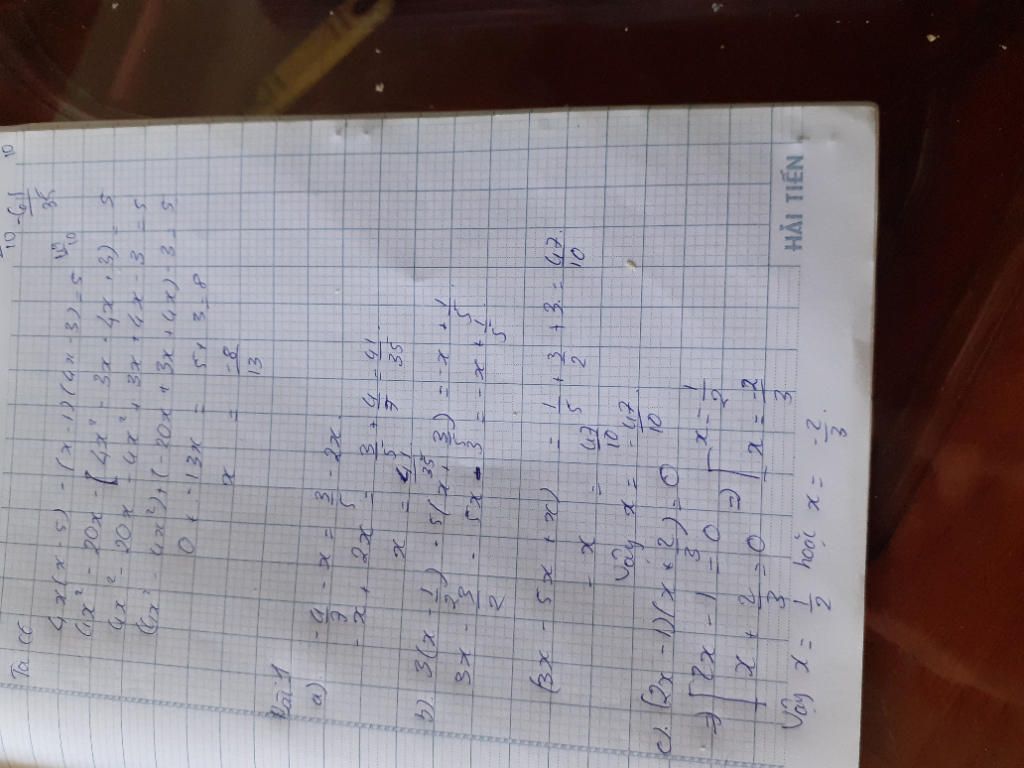 Ta có
4x(x - 5) - (x - 1)(4x - 3) = 5
4x² - 20x - [4x² - 3x - 4x + 3) = 5
4x² - 20x - 4x² + 3x + 4x - 3 = 5
(4x² - 4x²) + (-20x + 3x + 4x) - 3 = 5
0 + -13x = 5 + 3 = 8
x = -8/13
Bài 1
a) -4/7 - x = 3/5 - 2x
-x + 2x = 3/5 + 4/7 = 41/35
x = 41/35
b). 3(x - 1/2) - 5(x + 3/5) = -x + 1/5
3x - 3/2 - 5x - 3 = -x + 1/5
(3x - 5x + x) = 1/5 + 3/2 + 3 = 47/10
- x = 47/10
Vậy x = -47/10
c). (2x - 1)(x + 2/3) = 0
=> [2x - 1 = 0 => [x = 1/2
[x + 2/3 = 0 [x = -2/3
Vậy x = 1/2 hoặc x = -2/3.
HẢI TIẾN